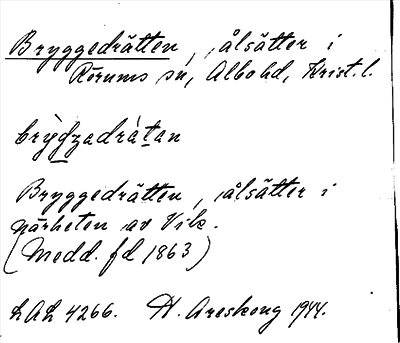 Bryggedrätten, ålsätter i
Rörums sn, Albo hd, Krist. l.
brỳd͟ʒadràt͟an
Bryggedrätten, ålsätter i
närheten av Vik.
(Medd. fd 1863)
LAL 4266. H. Areskoug 1944.